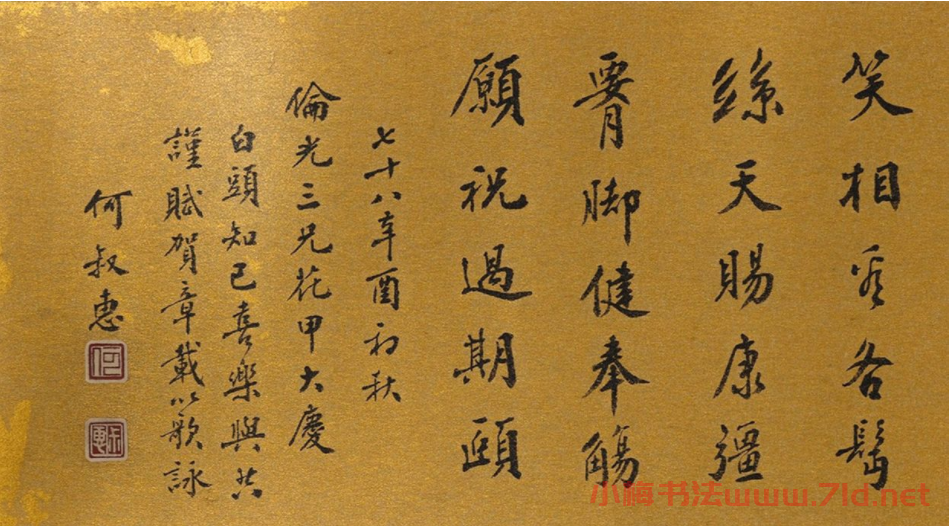 笑相看各髩
絲天賜康彊
腰脚健奉觴
願祝過期頤
七十八辛酉初秋
倫光三兄花甲大慶
白頭知己喜樂與共
謹賦賀章載以歌詠
何叔惠
何
叔惠
小梅书法www.7ld.net